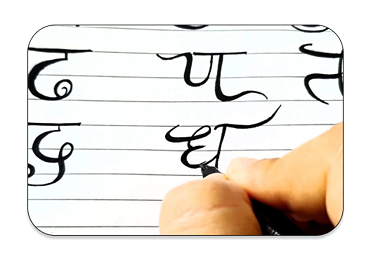 ढ ण त
द ध